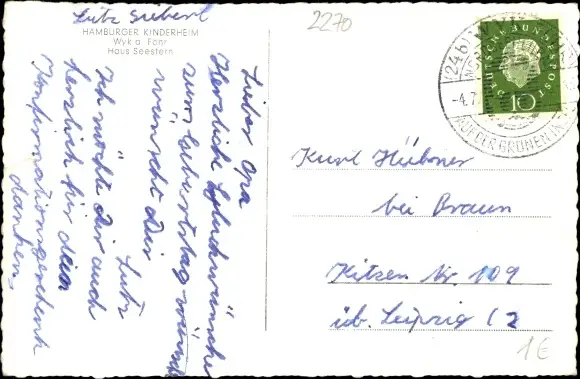 Lutz Siebert
HAMBURGER KINDERHEIM
Wyk a. Föhr
Haus Seestern
Lieber Opa
Herzliche Glückwünsche
zum Geburtstag
wünscht dir
Lutz
Ich möchte dir auch
herzlich für dein
Konfirmationsgeschenk
danken.
2270
DEUTSCHE BUNDESPOST
10
(24b) WYK
NORD
-4.7.
AUF DER GRÜNEN IN
Kurt Hübner
bei Braun
Kitzen Nr. 109
üb. Leipzig C 2
1€